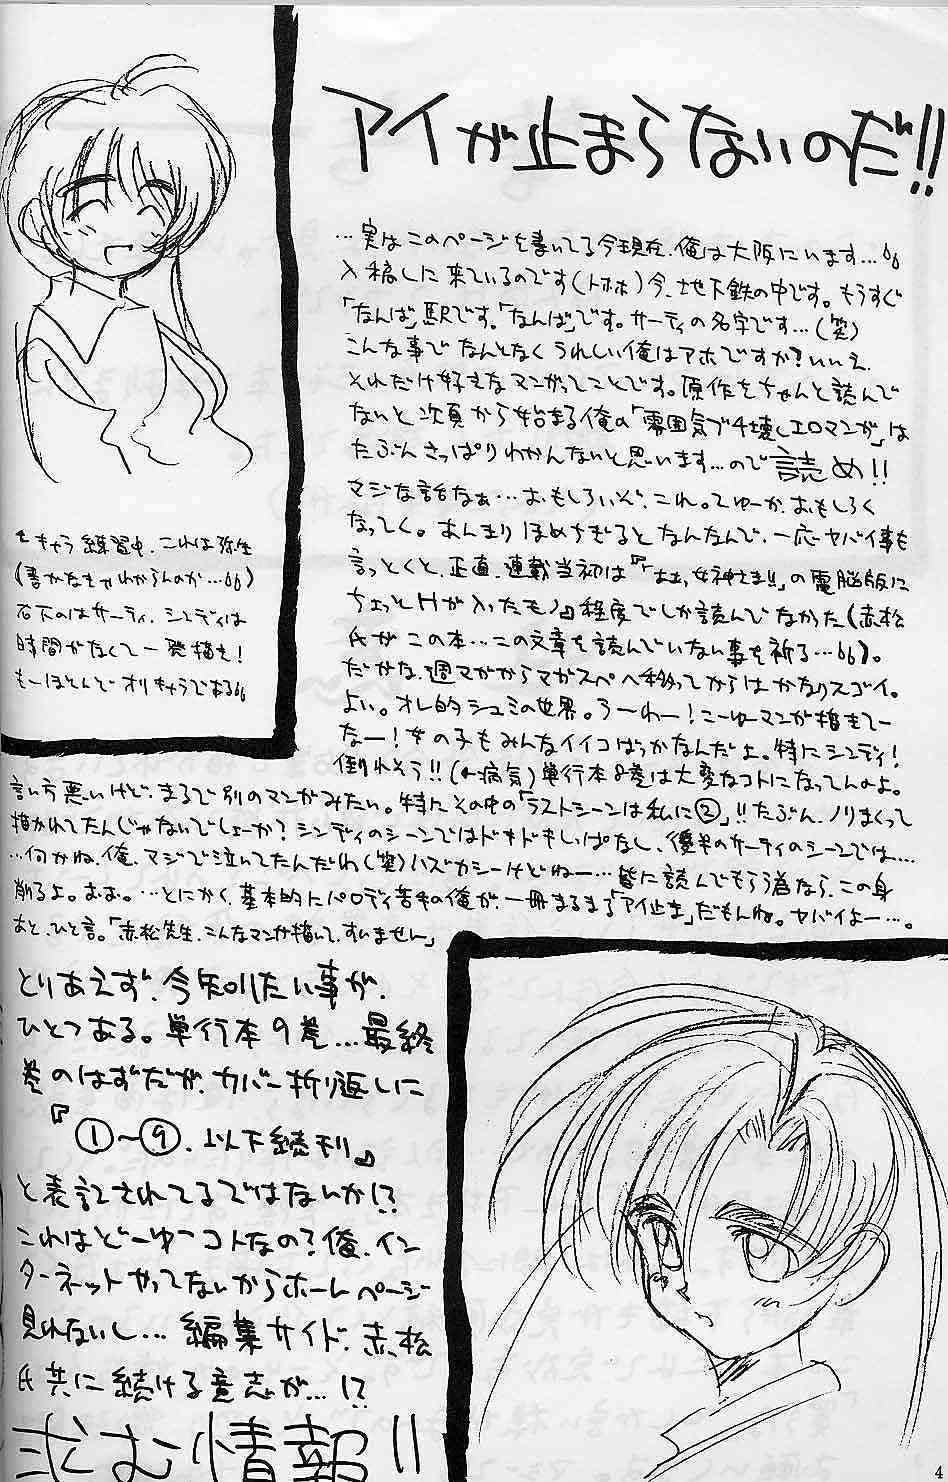 アイが止まらないのだ!!
…実はこのページを書いてる今現在、俺は大阪にいます…66
入稿しに来ているのです(トホホ)今、地下鉄の中です。もうすぐ
「なんば」駅です。「なんば」です。サーティの名字です…(笑)
こんな事でなんとなくうれしい俺はアホですか?いいえ、
それだけ好きなマンガってことです。原作をちゃんと読んで
ないと次頁から始まる俺の「雰囲気ブチ壊しエロマンガ」は
たぶんさっぱりわかんないと思います…ので読め!!
マジな話なぁ…おもしろいぞ、これ。てゆーか、おもしろく
なってく。あんまりほめちぎるとなんなんで、一応ヤバイ事も
言っとくと、正直、連載当初は『「ああ女神さまっ!!」の電脳版に
ちょっとHが入ったモノ』程度でしか読んでなかった(赤松
氏がこの本…この文章を読んでいない事を祈る…66)。
だがな、週マガからマガスペへ移ってからはかなりスゴイ。
よい。オレ的シュミの世界。うーわー!こーゆーマンガ描きてー
なー!女の子もみんなイイコばっかなんだよ。特にシンディ!
倒れそう!!(←病気)単行本8巻は大変なコトになってんのよ。
言い方悪いけど、まるで別のマンガみたい。特にその中の「ラストシーンは私に②」!!たぶん、ノリまくって
描かれてたんじゃないでしょーか?シンディのシーンではドキドキしっぱなし、後半のサーティのシーンでは…
…何かね、俺、マジで泣いてたんだわ(笑)ハズカシーけどねー…皆に読んでもらう為なら、この身
削るよ。おお。…とにかく、基本的にパロディ苦手の俺が、一冊まるまる「アイ止ま」だもんね。ヤバイよー…。
あと、ひと言。「赤松先生、こんなマンガ描いて、すいません」
もキャラ練習中、これは弥生
(書かなきゃわからんのか…66)
右下のはサーティ、シンディは
時間がなくて一発描き!
もーほとんどオリキャラである66
とりあえず、今知りたい事が、
ひとつある。単行本9巻…最終
巻のはずだが、カバー折り返しに
『①～⑨、以下続刊』
と表記されてるではないか!?
これはどーゆーコトなの?俺、イン
ターネットやってないからホームページ
見れないし…編集サイド、赤松
氏共に続ける意志が…!?
求む情報!!
4